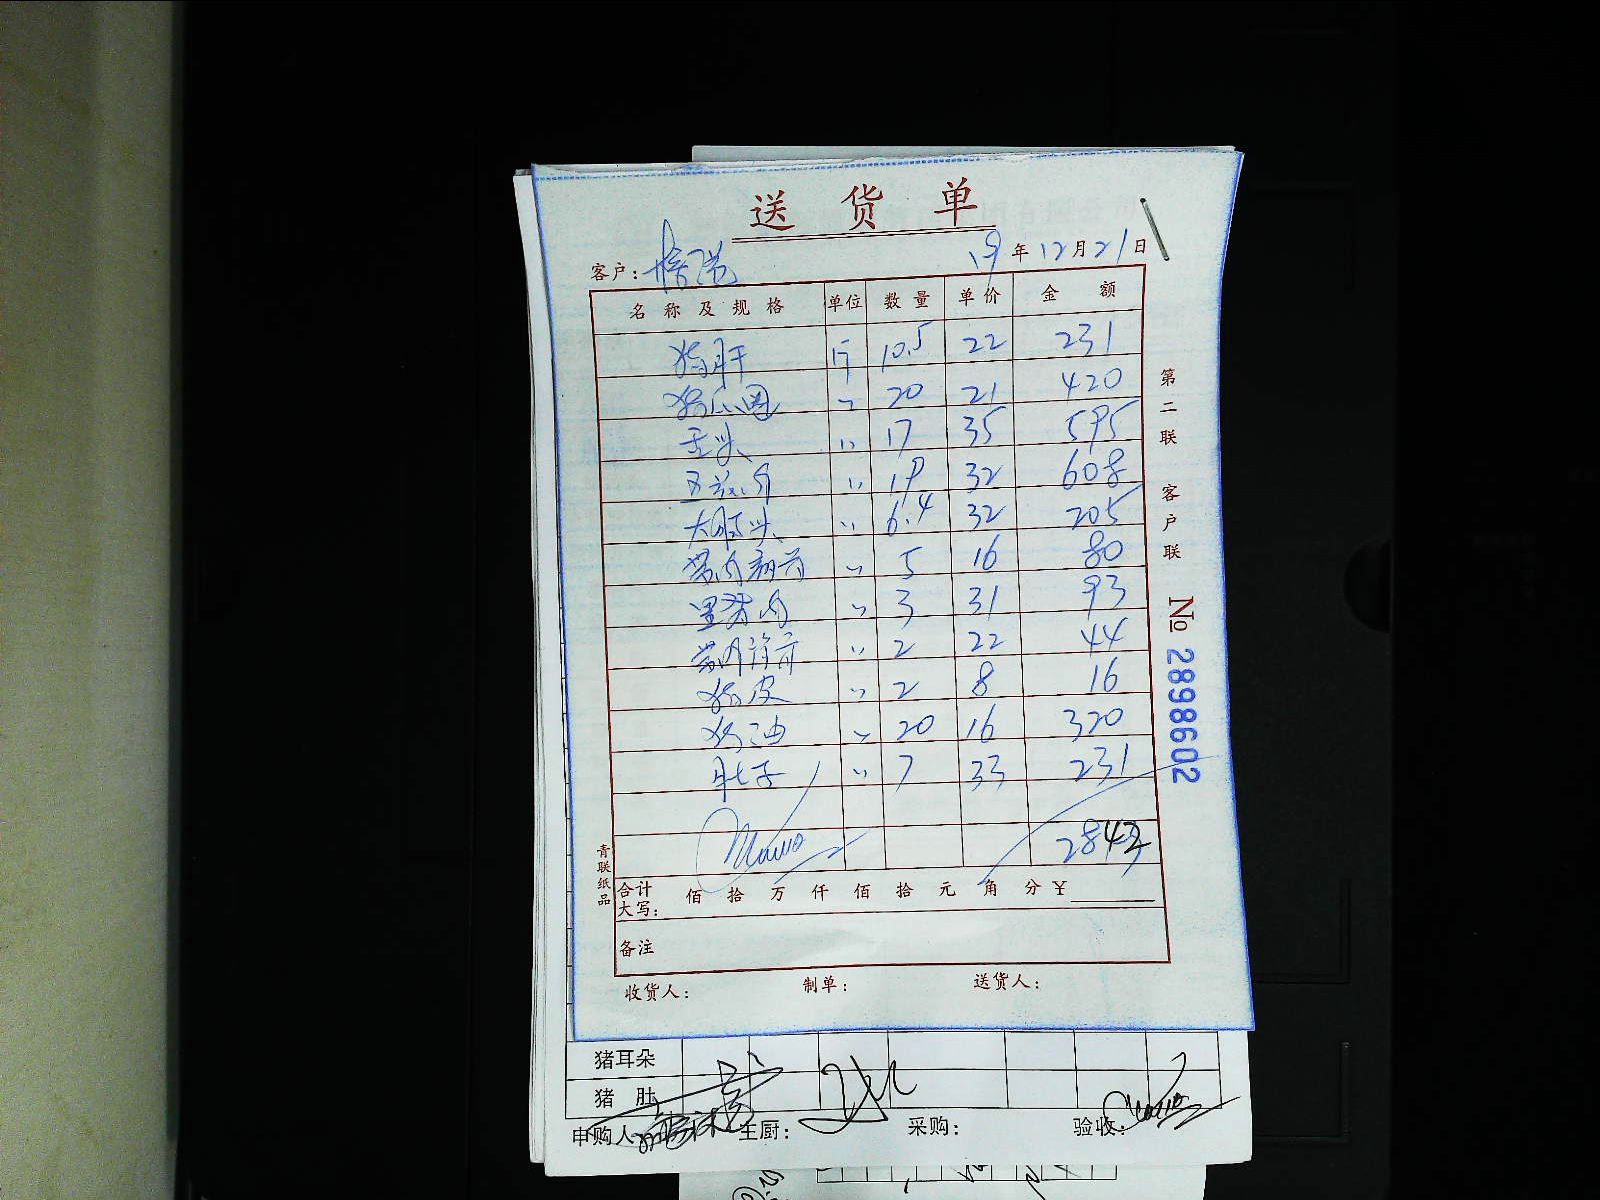 送货单
客户： 19年12月21日
名称及规格 单位 数量 单价 金额
猪肝 斤 10.5 22 231
20 21 420
舌头 〃 17 35 595
五花肉 〃 19 32 608
大肠头 〃 6.4 32 205
〃 5 16 80
里脊肉 〃 3 31 93
〃 2 22 44
猪皮 〃 2 8 16
猪油 〃 20 16 320
肚子 〃 7 33 231
2842
合计大写： 佰 拾 万 仟 佰 拾 元 角 分 ¥
备注
收货人： 制单： 送货人：
第二联 客户联
№ 2898602
青联纸品
猪耳朵
猪肚
申购人 主厨： 采购： 验收：